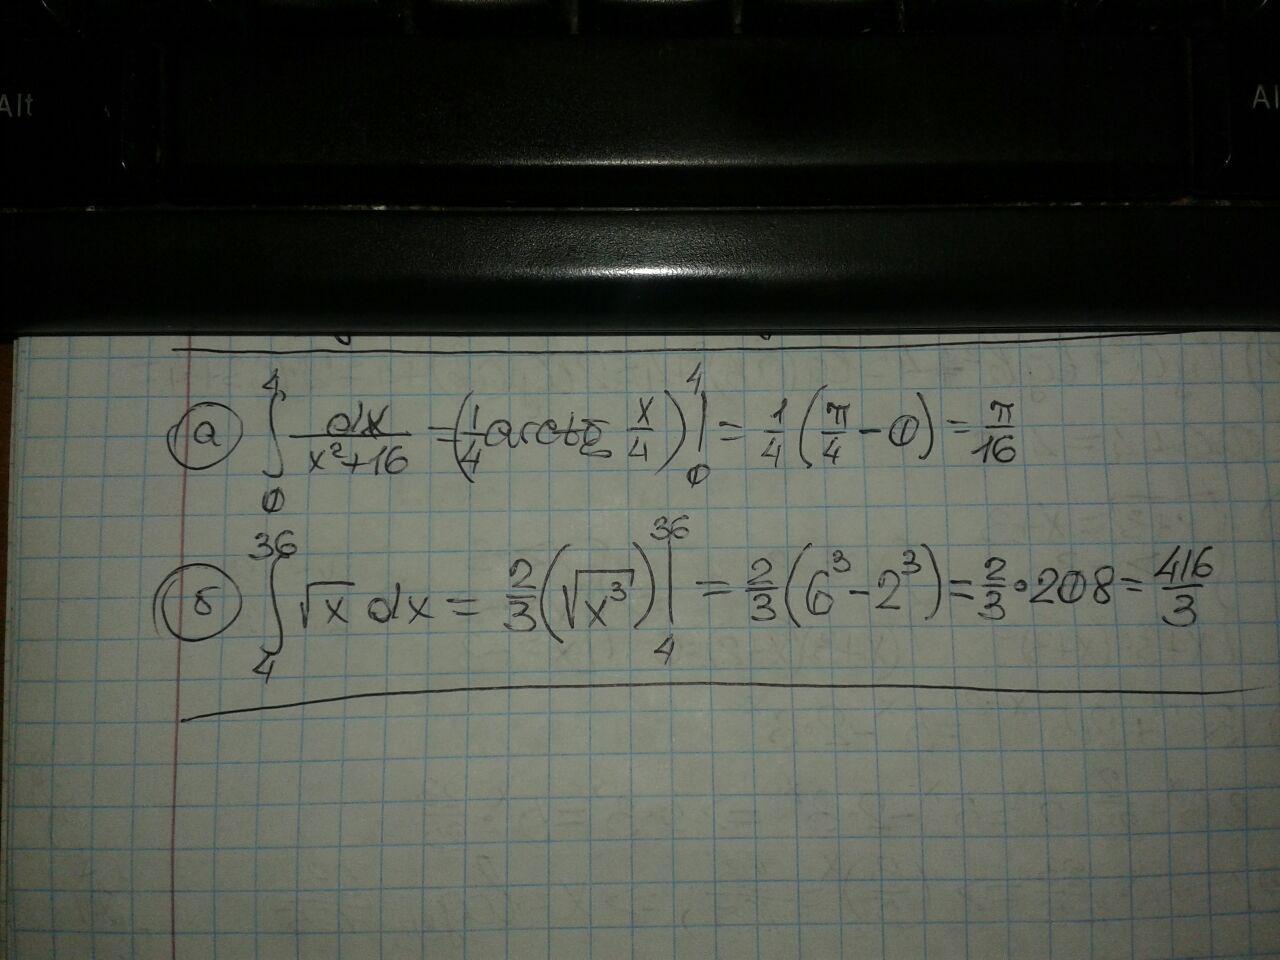 Alt
Al
а) ∫₀⁴ dx/(x²+16) = (1/4 arctg x/4)|₀⁴ = 1/4 (π/4 - 0) = π/16
б) ∫₄³⁶ √x dx = 2/3 (√x³)|₄³⁶ = 2/3 (6³ - 2³) = 2/3 · 208 = 416/3